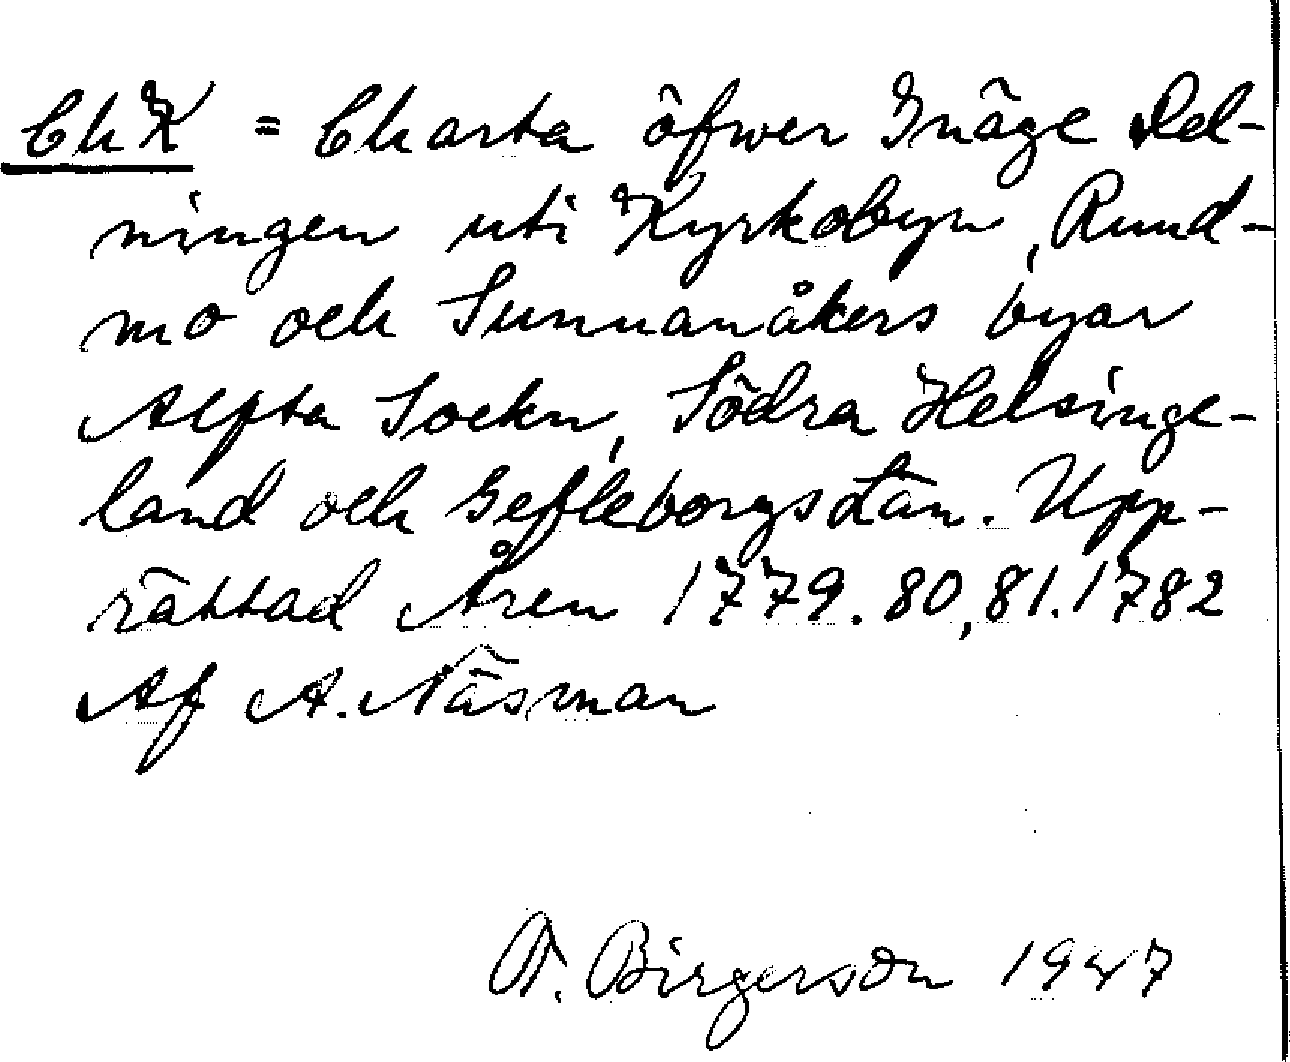 ChK = Charta öfwer Inäge Del-
ningen uti Kyrkobyn, Rund-
mo och Sunnanåkers byar
Alfta Sockn, Södra Helsinge-
land och Gefleborgs Län. Upp-
rättad Åren 1779. 80, 81. 1782
Af A. Näsman
F. Birgerson 1947